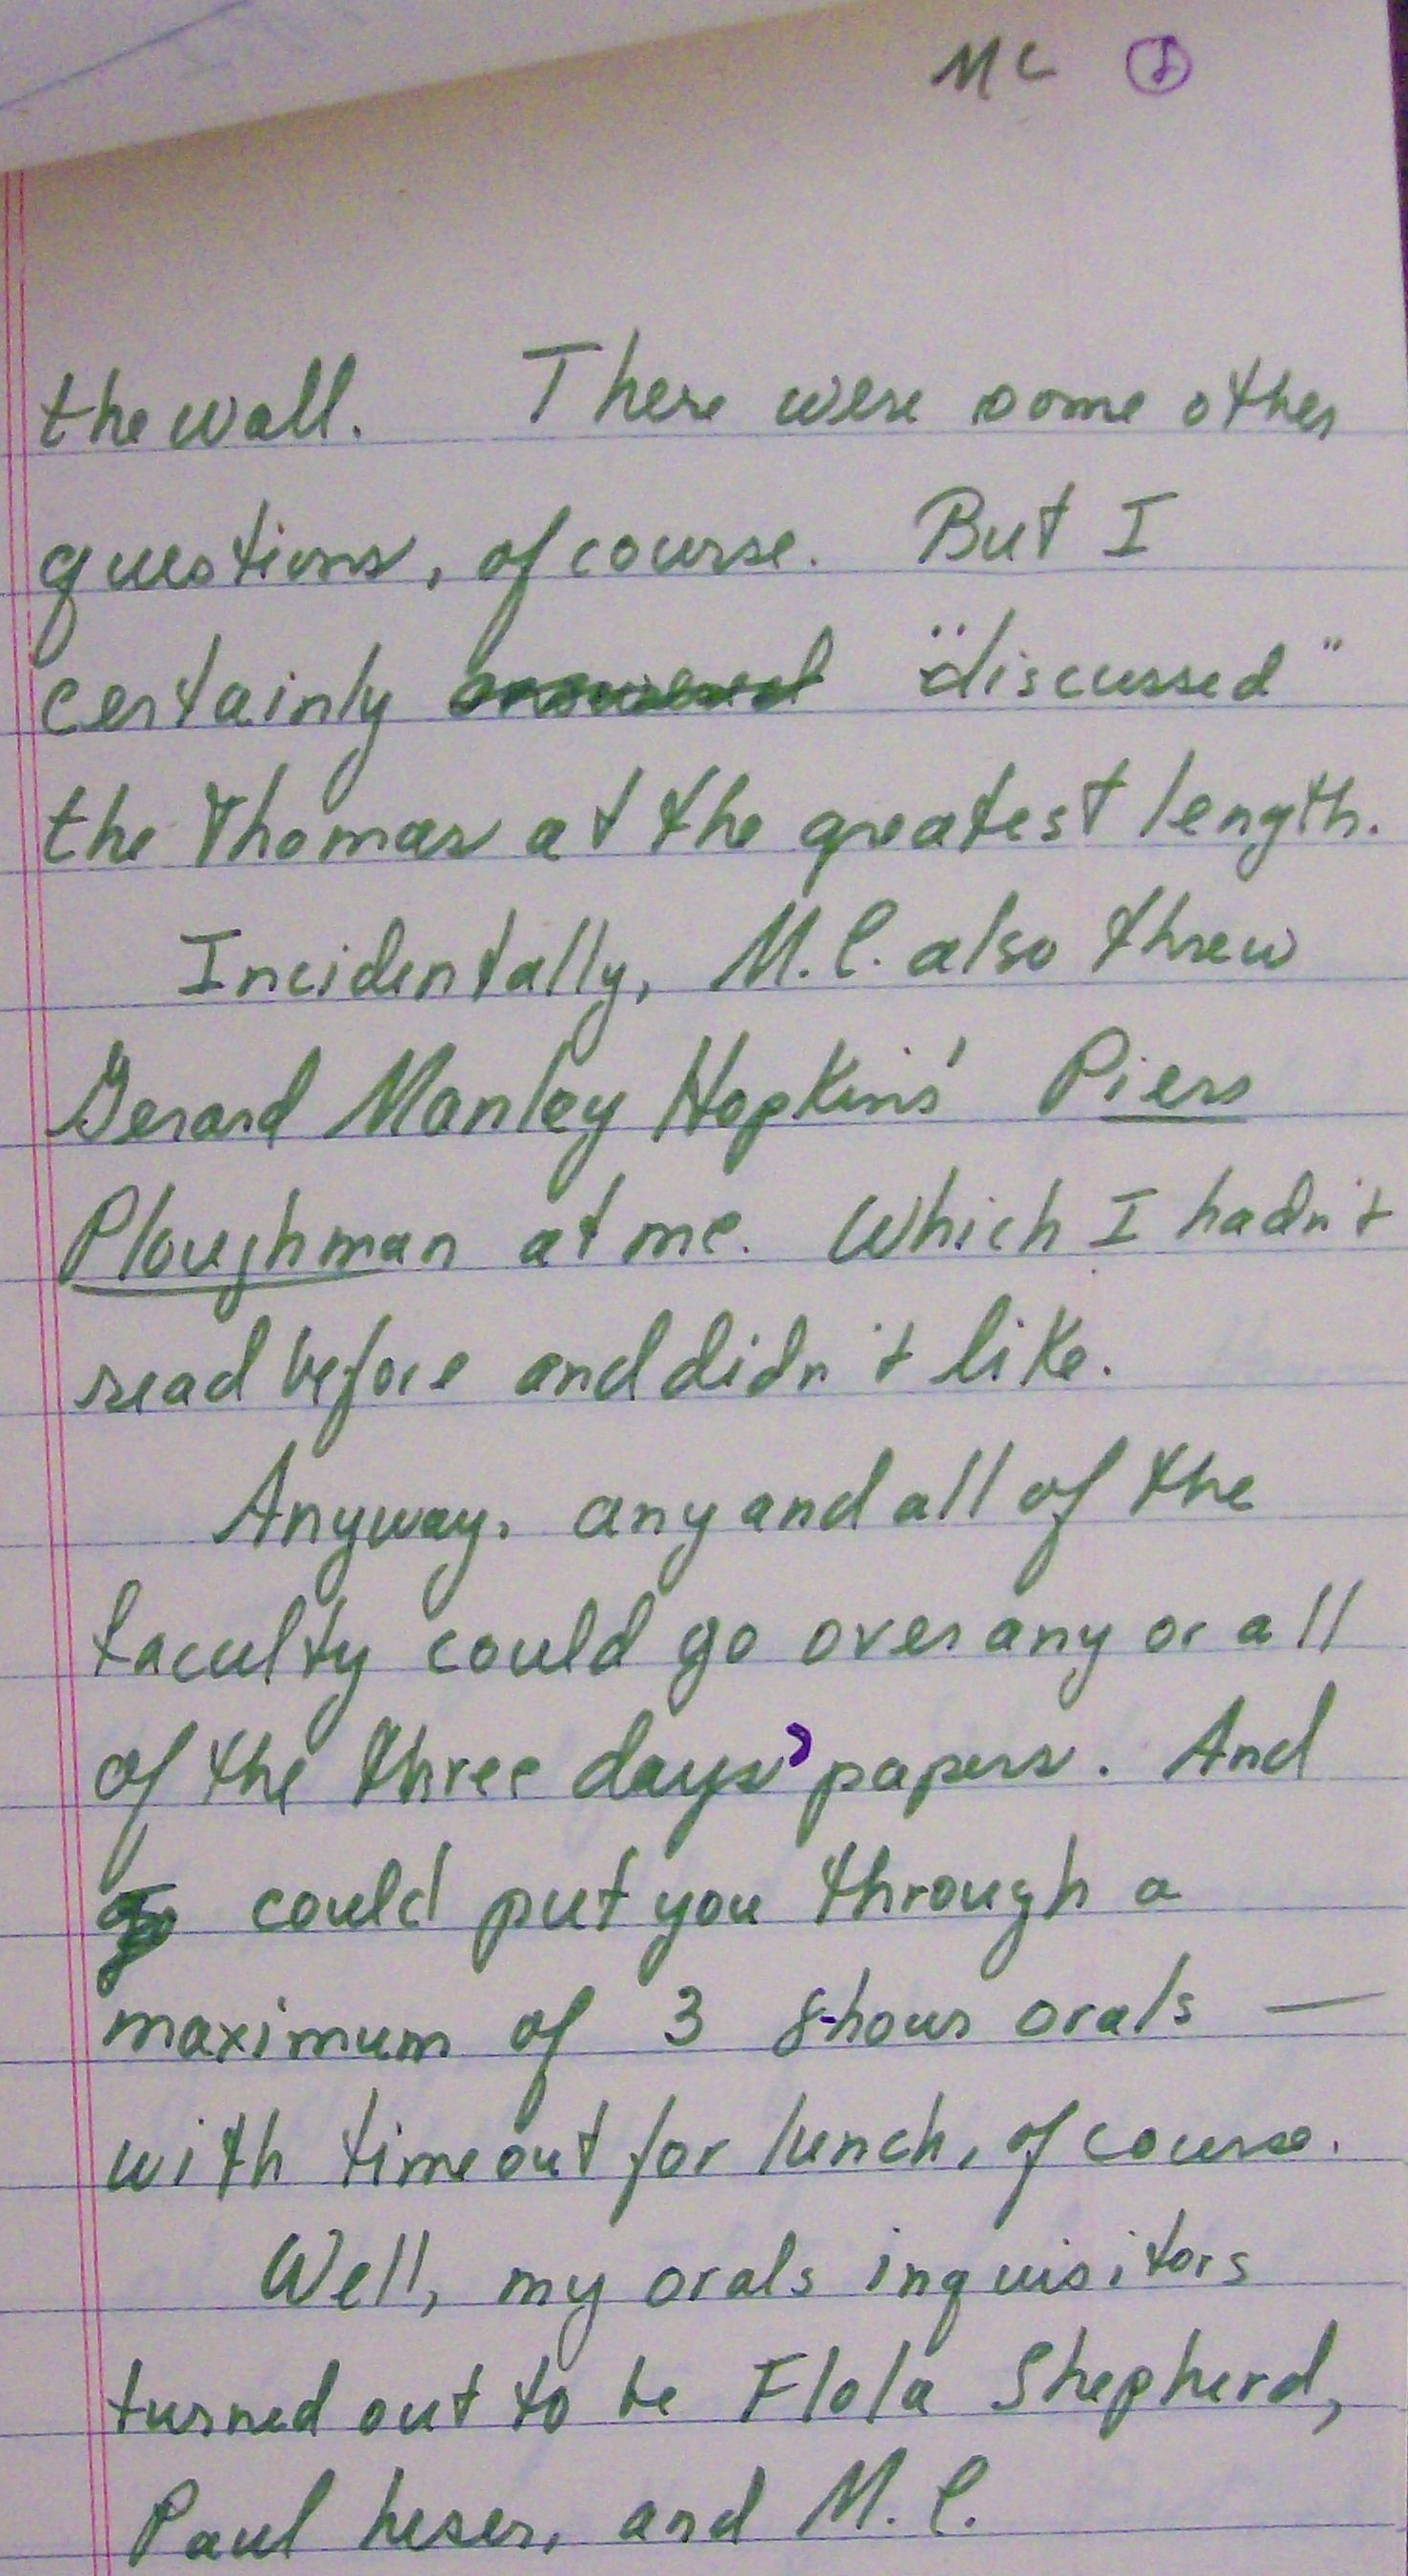 MC
the wall. There were some other
questions, of course. But I
certainly answered "discussed"
the Thomas at the greatest length.
Incidentally, M.C. also threw
Gerard Manley Hopkins' Piers
Ploughman at me. Which I hadn't
read before and didn't like.
Anyway, any and all of the
faculty could go over any or all
of the three days' papers. And
could put you through a
maximum of 3 8-hour orals —
with time out for lunch, of course.
Well, my orals inquisitors
turned out to be Flola Shepherd,
Paul Leser, and M.C.